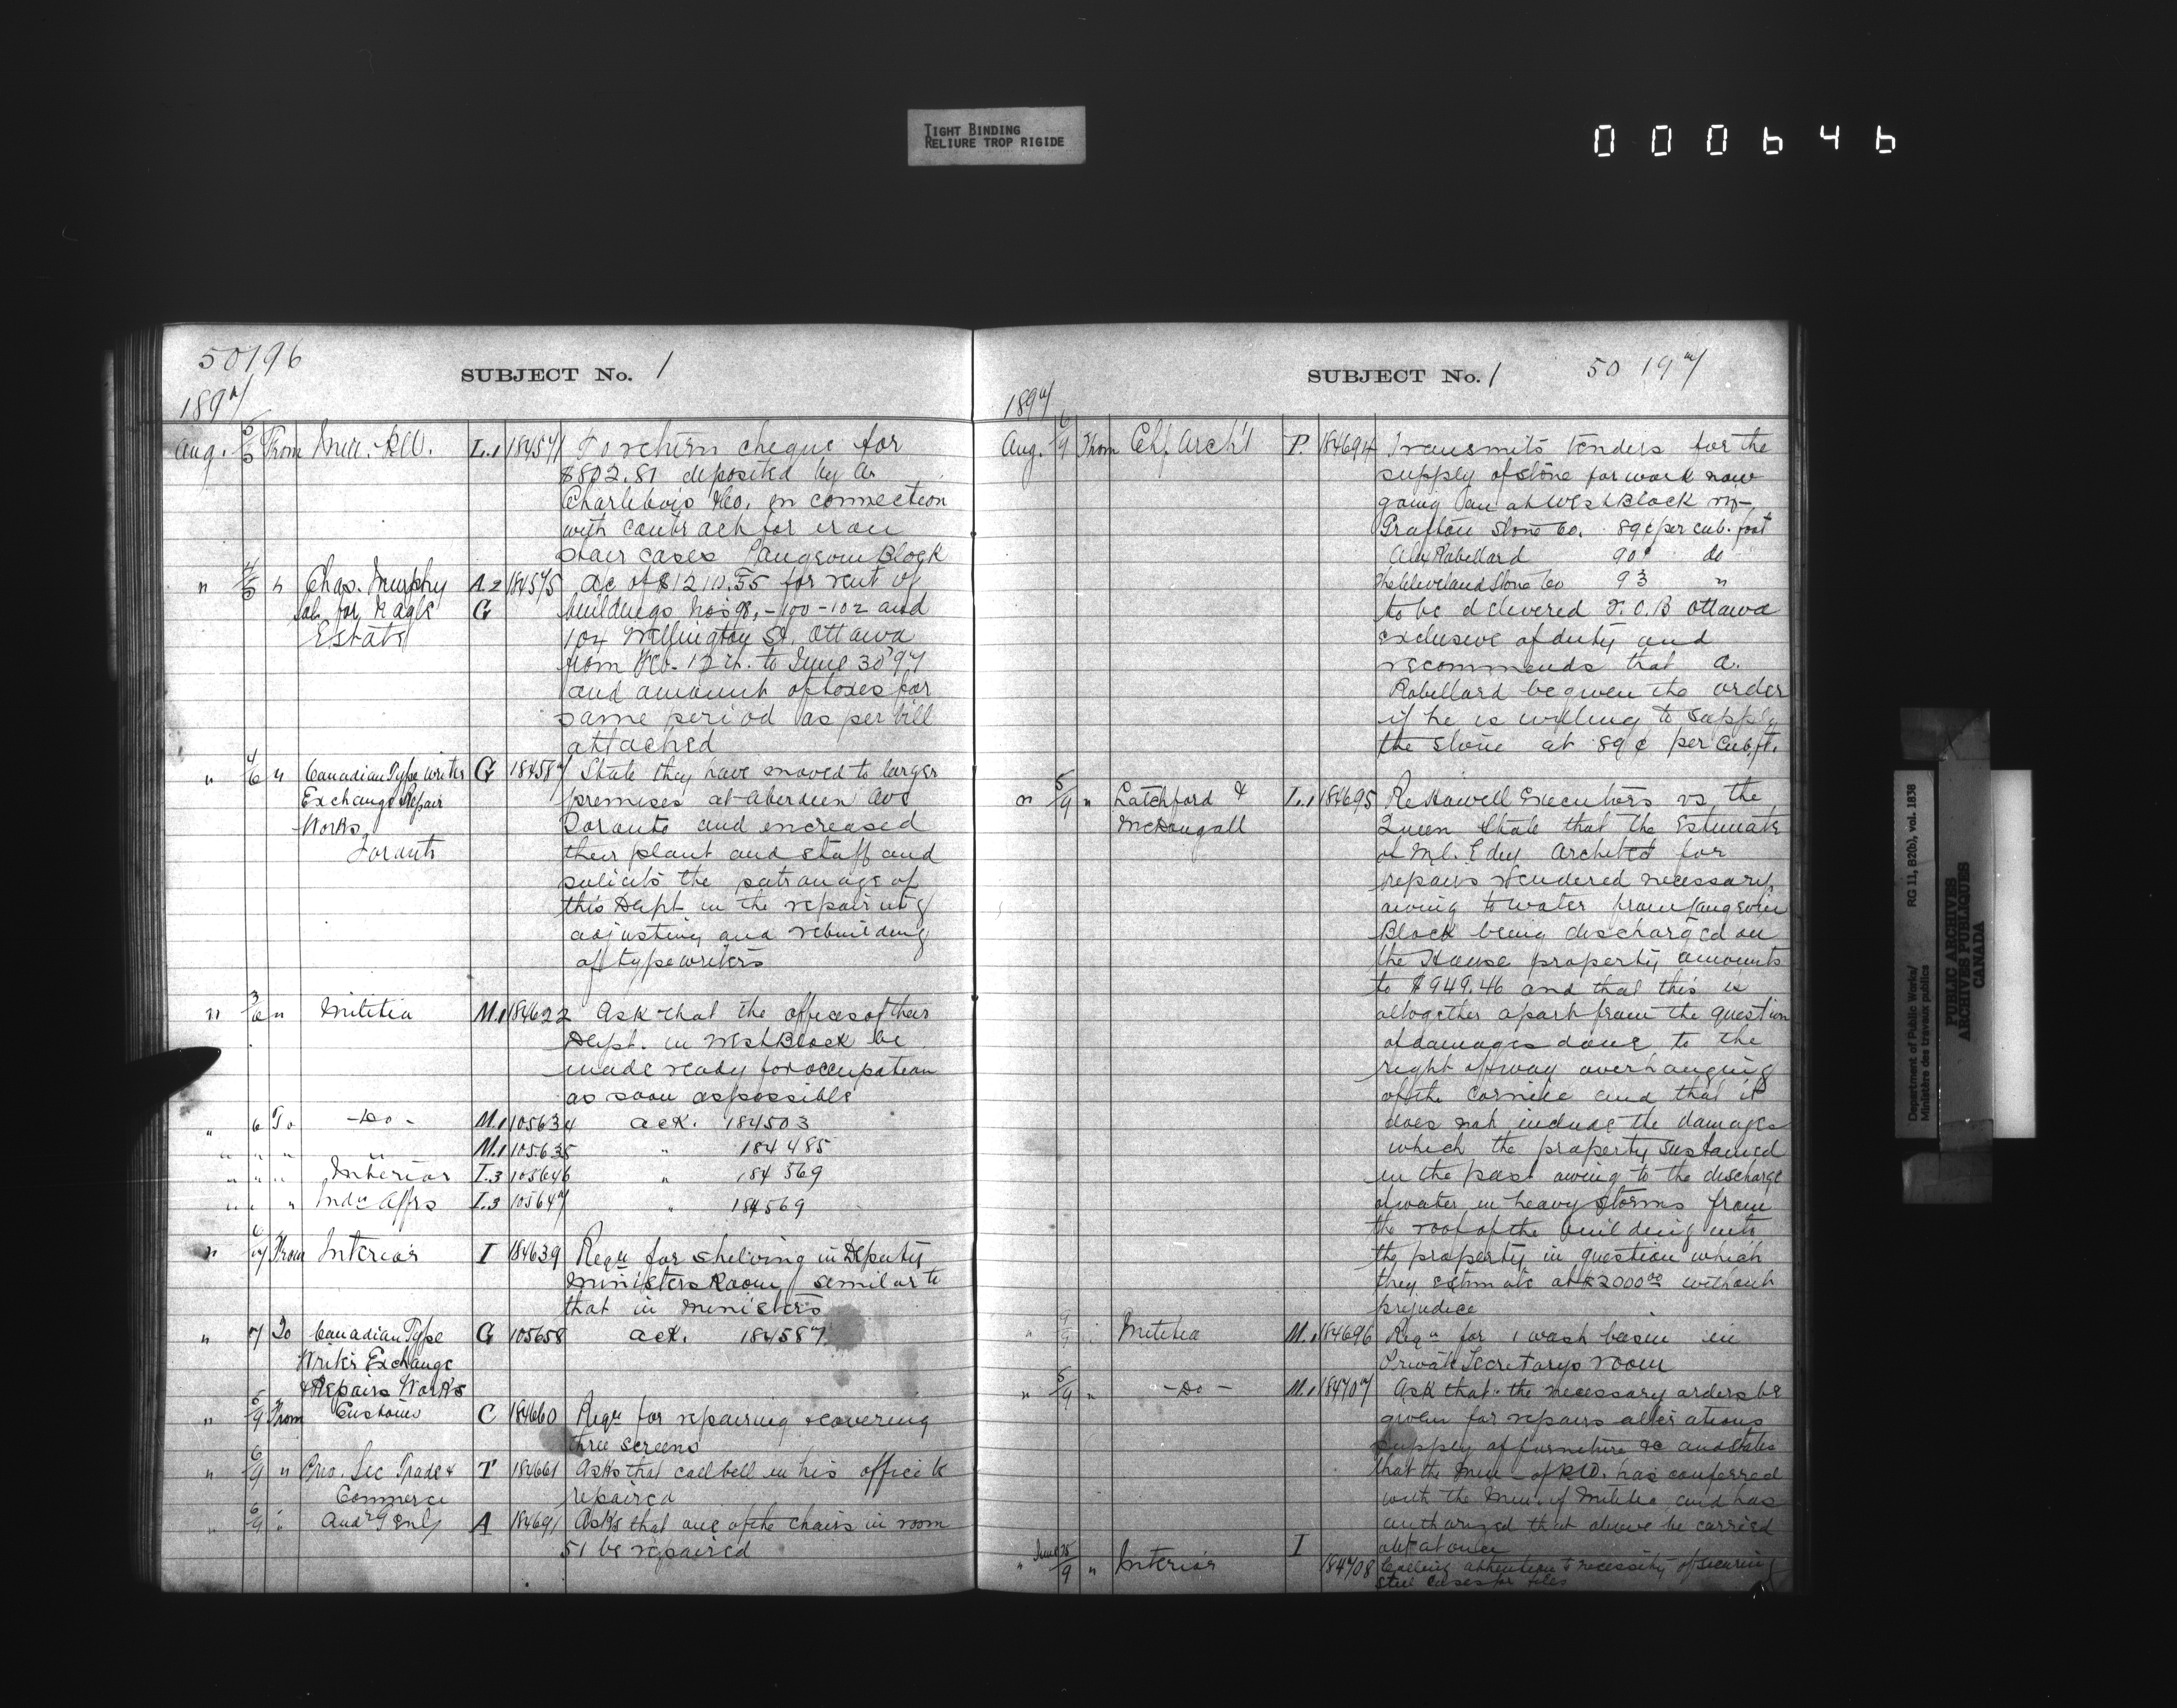 TIGHT BINDING
RELIURE TROP RIGIDE
000646
50196
SUBJECT No. 1
1897
Aug. 5/5 From Min. P.W. L.1 184571 To return cheque for
$802.81 deposited by A.
Charlebois & Co. in connection
with contract for iron
stair cases Langevin Block
" 4/5 " Chas. Murphy A.2 184575 ac of $1210.55 for rent of
for Eagle G buildings Nos 98, - 100 - 102 and
Estate 104 Wellington St. Ottawa
from Feb. 12 to June 30 '97
and amount of taxes for
same period as per bill
attached
" 4/6 " Canadian Type Writer G 184587 State they have moved to larger
Exchange & Repair premises at Aberdeen Ave
Works, Toronto and increased
Toronto their plant and staff and
solicits the patronage of
this Dept in the repairing
adjusting and rebuilding
of typewriters
" 3/6 " Militia M.1 184622 Ask that the offices of their
Dept. in West Block be
made ready for occupation
as soon as possible
" 6 To - Do - M.1 105634 ack. 184503
" " " " M.1 105635 " 184485
" " " Interior I.3 105646 " 184569
" " " Indn Affrs I.3 105647 " 184569
" 6/7 From Interior I 184639 Reqn for shelving in Deputy
Ministers Room similar to
that in Ministers
" 7 To Canadian Type G 105658 ack. 184587
Writer Exchange
& Repairs Works
" 5/9 From Customs C 184660 Reqn for repairing & covering
three screens
" 6/9 " Priv. Sec Trade & T 184661 Asks that call bell in his office be
Commerce repaired
" 6/9 " Audr Genl A 184691 Asks that one of the chairs in room
51 be repaired
SUBJECT No. 1
50197
1897
Aug. 6/9 From Chf. Archt P. 184694 Transmits tenders for the
supply of stone for work now
going on at West Block viz-
Grafton Stone Co. 89¢ per cub. foot
Alex Robillard 90¢ do
The Cleveland Stone Co 93 "
to be delivered F.O.B Ottawa
exclusive of duty and
recommends that A.
Robillard be given the order
if he is willing to supply
the stone at 89¢ per cub. ft.
" 5/9 " Latchford & L.1 184695 Re Howell Executors vs, the
McDougall Queen State that the Estimate
of Mr. Edey Architect for
repairs rendered necessary
owing to water from Langevin
Block being discharged on
the House property amounts
to $949.46 and that this is
altogether apart from the question
of damages done to the
right of way overhanging
of the Cornice and that it
does not include the damages
which the property sustained
in the past owing to the discharge
of water in heavy storms from
the roof of the building into
the property in question which
they estimate at $2000.00 without
prejudice
" 9/9 " Militia M.1 184696 Reqn for 1 wash basin in
Private Secretarys room
" 5/9 " - Do - M.1 184707 Ask that the necessary orders be
given for repairs alterations
supply of furniture &c and states
that the Min - of P.W. has conferred
with the Min. of Militia and has
authorized that above be carried
out at once
" June 25/9 " Interior I 184708 Calling attention to necessity of securing
steel cases for files
Department of Public Works/
Ministère des travaux publics
RG 11, B2(b), vol. 1838
PUBLIC ARCHIVES
ARCHIVES PUBLIQUES
CANADA